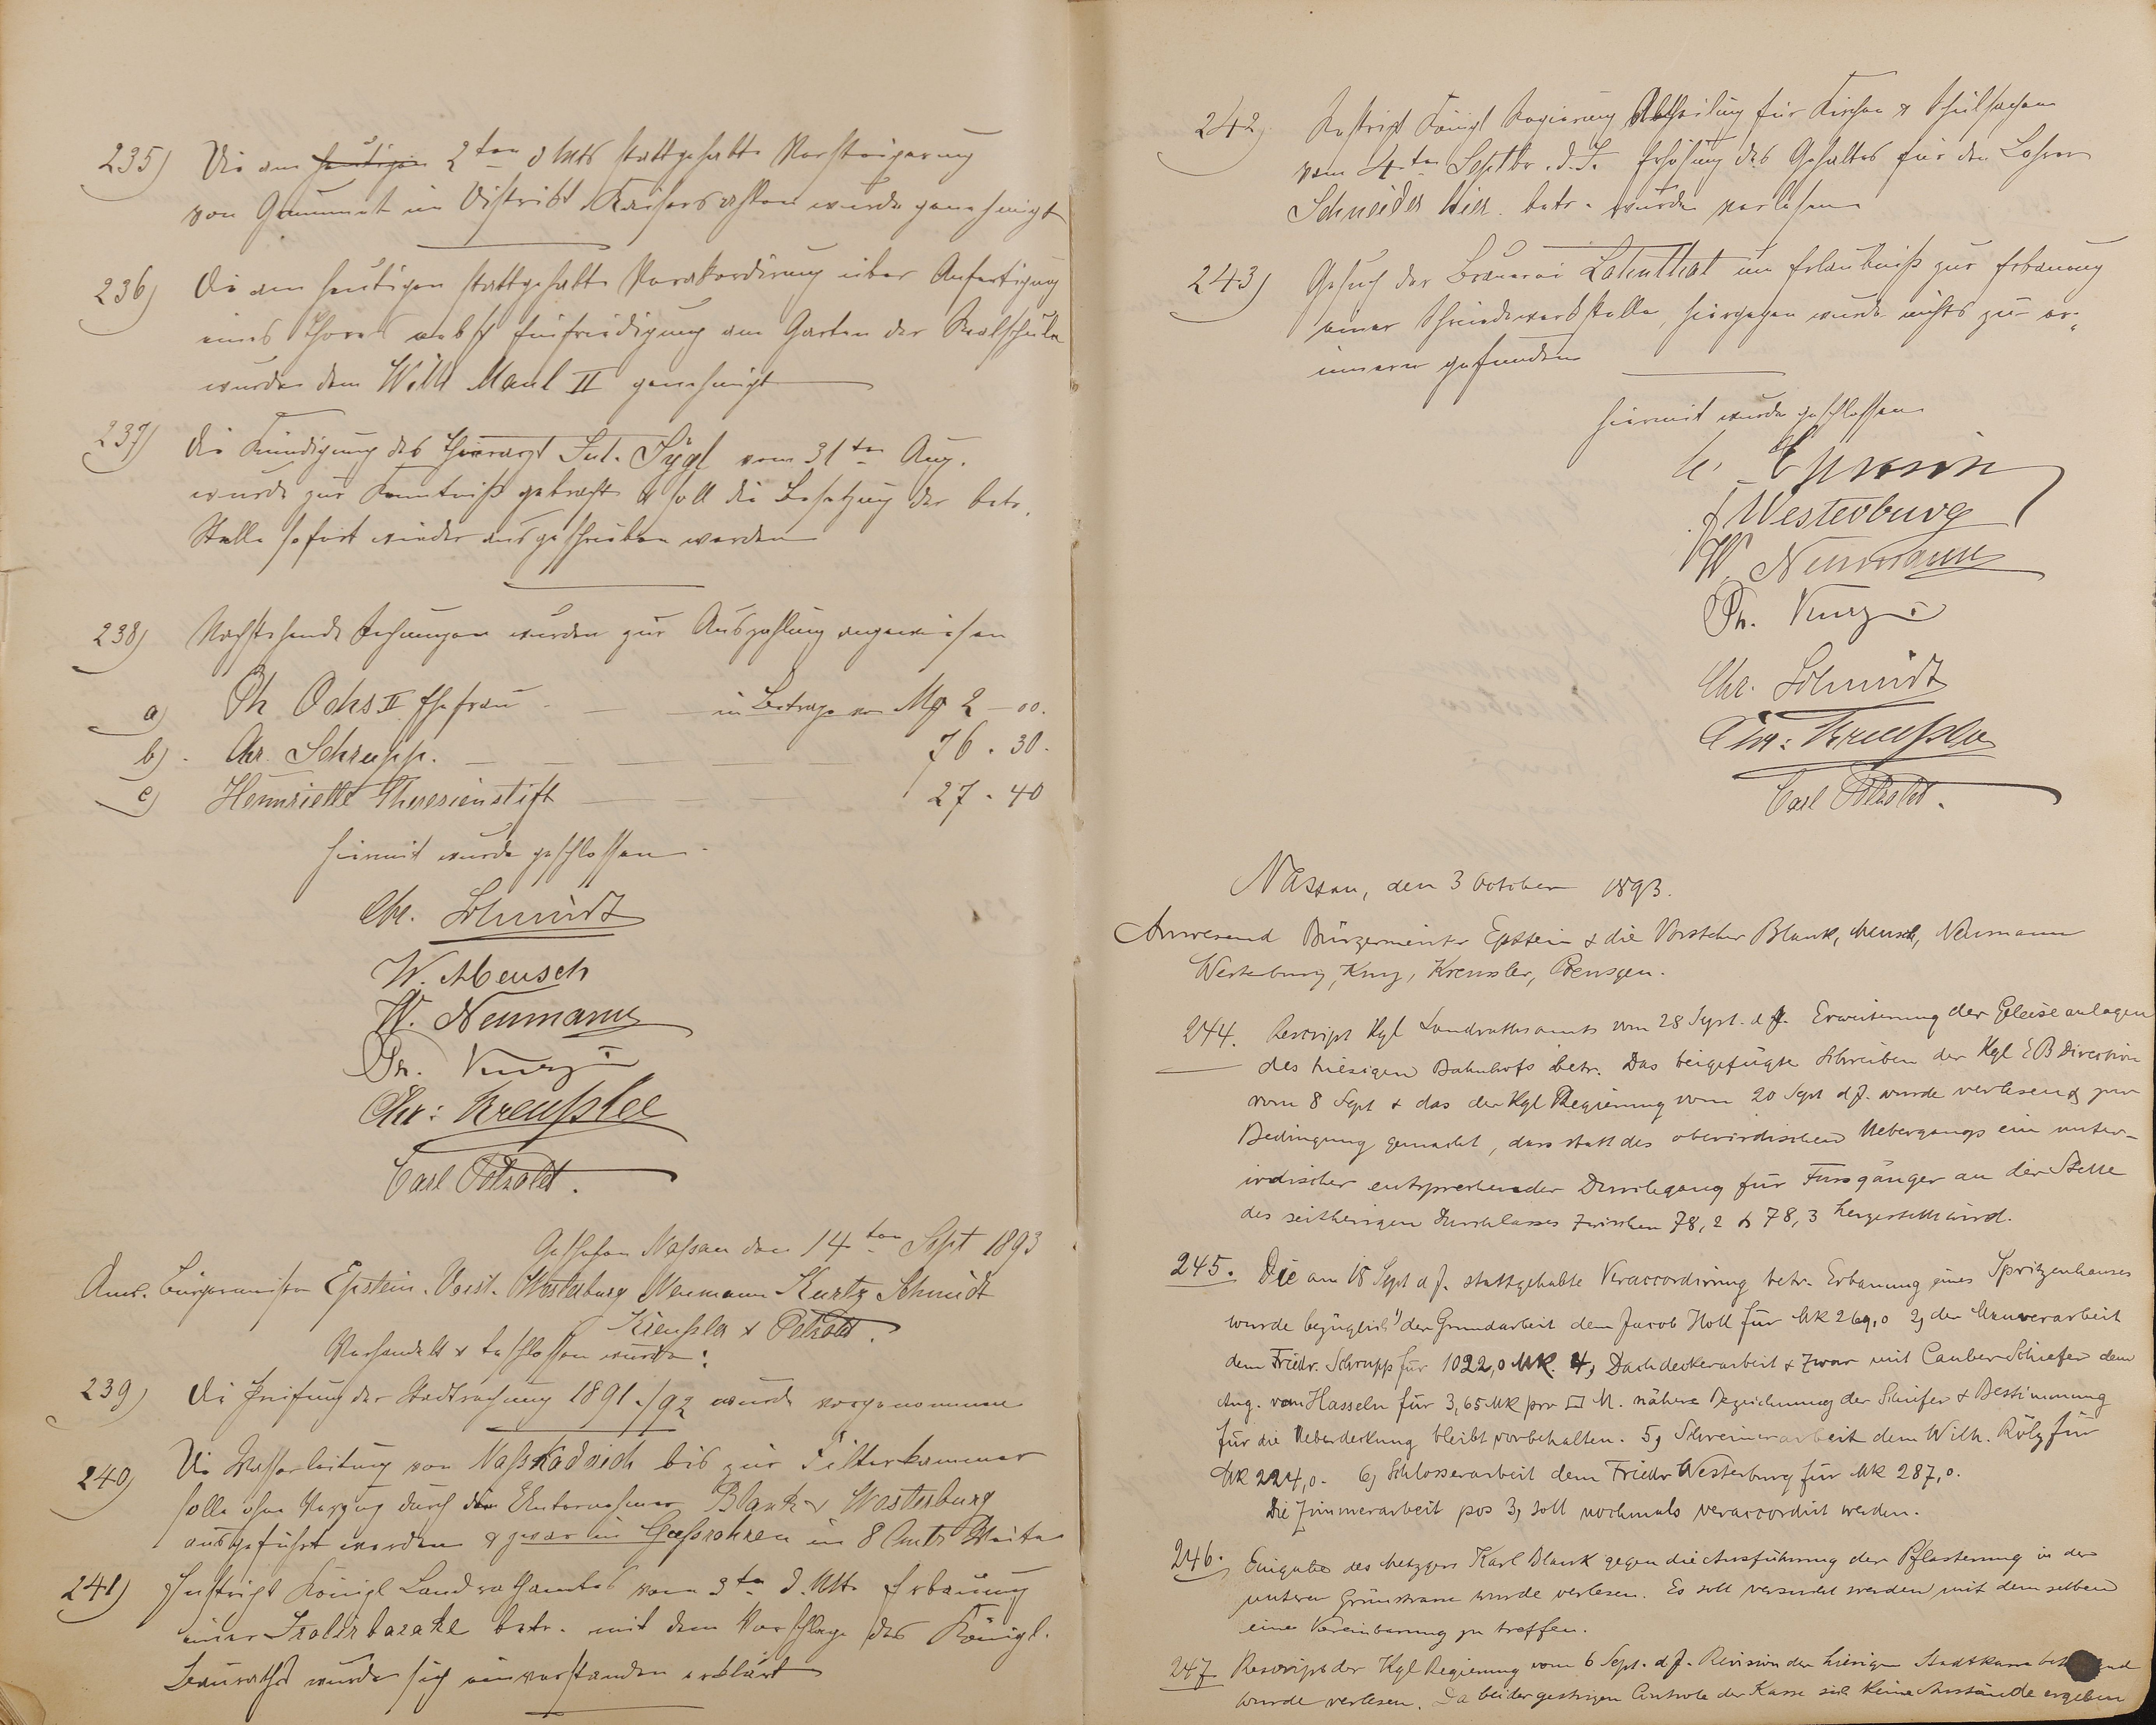 235) Die am heutigen 2ten d Mts stattgehabte Versteigerung
von Grummet im District Kaisers wurde genehmigt
236) Die am heutigen stattgehabte Verakkordirung über Anfertigung
eines Thores nebst Einfriedigung am Garten der Realschule
wurde dem Wilh Maul II genehmigt
237) Die Kündigung des Thierarzt Jul. vom 31ten Aug.
wurde zur Kenntniß gebracht & soll die Besetzung der betr.
Stelle sofort wieder ausgeschrieben werden
238) Nachstehende Rechnungen wurden zur Auszahlung angewiesen
a) Ph Ochs II Ehefrau - im Betrage von 2 - 00.
b) Chr. Schrupp. 76 . 30.
c) Hennriette Theresienstift 27 . 40
hiermit wurde geschlossen
Chr. Schmidt
W. Mensch
W. Neumann
Ph. Kurz
Chr: Kreußler
Carl Petzoldt.
Geschehen Nassau den 14ten Sept 1893
Anw. Bürgermeister Epstein. Vorst. Westerburg Neumann Kurtz Schmidt
Kreußler & Petzoldt.
Verhandelt & beschlossen wurde:
239) Die Prüfung der Stadtrechnung 1891./92 wurde vorgenommen
240) Die Wasserleitung von bis zur Filterkammer
solle ohne Verzug durch die Unternehmer Blank & Westerburg
ausgeführt werden & zwar in Gußrohren in 8 Cmtr Weite
241) Königl Landrathsamtes vom 3ten d. Mts Erbauung
einer Isolirbaracke betr. mit dem Vorschlage des Königl.
Bauraths wurde sich einverstanden erklärt
242) Rescript Königl Regierung Abtheilung für Kirchen & Schulsachen
vom 4ten Septbr. d. J. Erhöhung des Gehaltes für den Lehrer
Schneider hier. betr. wurde verlesen
243) Gesuch der Brauerei um Erlaubniß zur Erbauung
einer Schmiedewerkstelle, hiergegen wurde nichts zu er-
innern gefunden
hiermit wurde geschlossen
Epstein
Westerburg
W. Neumann
Ph. Kurz
Chr. Schmidt
Chr: Kreußler
Carl Petzoldt.
Nassau, den 3 October 1893.
Anwesend Bürgermeister Epstein & die Vorsteher Blank, Mensch, Neumann
Westerburg, Kurz, Kreussler,
244. Rescript Kgl Landrathsamts vom 28 Sept. d J. Erweiterung der Geleiseanlagen
des hiesigen Bahnhofs betr. Das beigefügte Schreiben der Kgl EB Direction
vom 8 Sept & das der Kgl Regierung vom 20 Sept d J. wurde verlesen & zur
Bedingung gemacht, dass statt des oberirdischen Uebergangs ein unter-
irdischer entsprechender Durchgang für Fussgänger an der Stelle
des seitherigen Durchlasses zwischen 78,2 & 78,3 hergestellt wird.
245. Die am 18 Sept d J. stattgehabte Veraccordirung betr. Erbauung eines Spritzenhauses
wurde bezüglich 1) der Grundarbeit dem Jacob Holl für Mk 269,0 2, der Maurerarbeit
dem Friedr. Schrupp für 1022,0 Mk. 4, Dachdeckerarbeit & zwar mit Cauber Schiefer dem
Aug. von Hasseln für 3,65 Mk pro □ M. nähere Bezeichnung der Schiefer & Bestimmung
für die Ueberdeckung bleibt vorbehalten. 5, Schreinerarbeit dem Wilh. Rölz für
Mk 224,0. 6, Schlosserarbeit dem Friedr Westerburg für Mk 287,0.
Die Zimmerarbeit pos 3, soll nochmals veraccordirt werden.
246. Eingabe des Metzgers Karl Blank gegen die Ausführung der Pflasterung in der
unteren Grünstrasse wurde verlesen. Es soll versucht werden mit demselben
eine Vereinbarung zu treffen.
247 Rescript der Kgl Regierung vom 6 Sept. d J. Revision der hiesigen Stadtkasse
wurde verlesen. Da bei der gestrigen Controle der Kasse sich keine Anstände ergeben